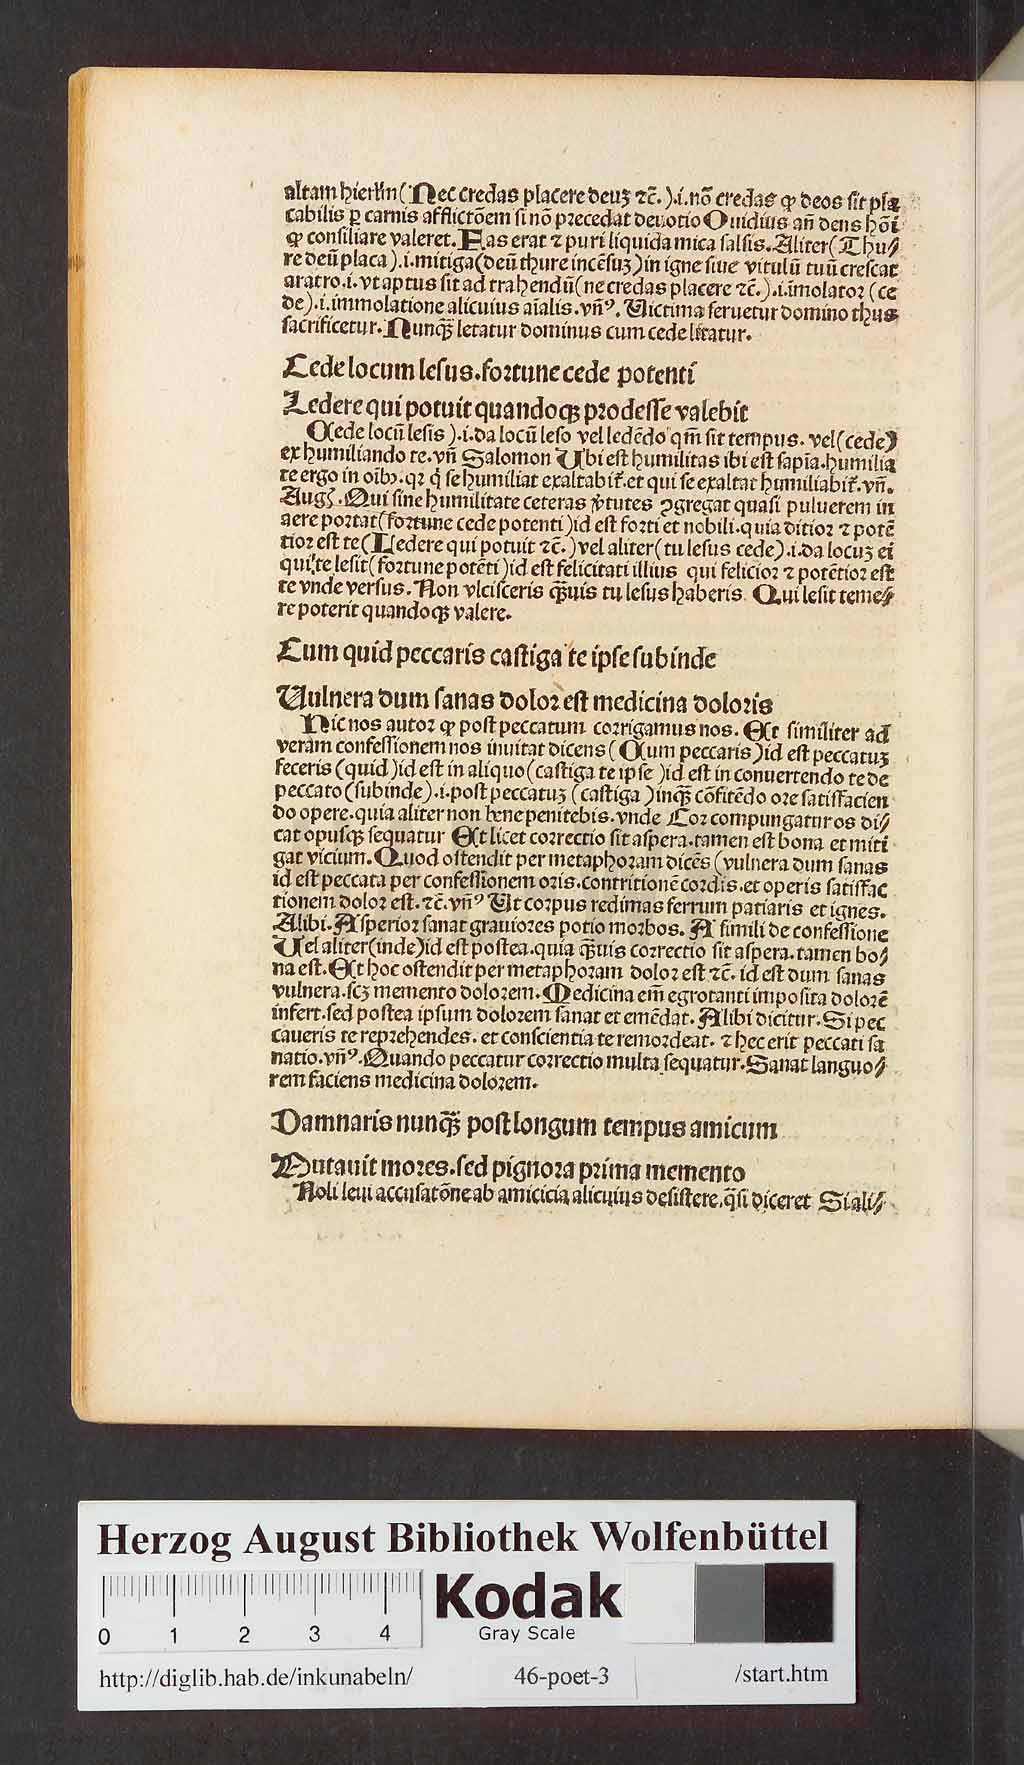 altam hierl'm (Nec credas placere deuʒ ⁊c̄.).i.nō credas ꝙ deos sit pla
cabilis ꝑ carnis afflictōem si nō precedat deuotio Ouidius an̄ dens hōi
ꝙ consiliare valeret. Fas erat ⁊ puri liquida mica salsis. Aliter (Thu⸗
re deū placa).i.mitiga (deū thure incēsuʒ) in igne siue vitulū tuū crescat
aratro.i.vt aptus sit ad trahendū (ne credas placere ⁊c̄.).i.īmolator (ce
de).i.immolatione alicuius aīalis.vn̄ꝰ. Uictima feruetur domino thus
sacrificetur. Nunqꝫ letatur dominus cum cede litatur.
Cede locum lesus.fortune cede potenti
Ledere qui potuit quandoqꝫ prodesse valebit
(Cede locū lesis).i.da locū leso vel ledēdo qm̄ sit tempus. vel (cede)
ex humiliando te.vn̄ Salomon Ubi est humilitas ibi est sapīa.humilia
te ergo in oībꝫ.qꝛ q' se humiliat exaltabit̄.et qui se exaltat humiliabit̄.vn̄.
Augꝫ. Qui sine humilitate ceteras v̓tutes ꝯgregat quasi puluerem in
aere portat (fortune cede potenti) id est forti et nobili.quia ditior ⁊ potē
tior est te (Ledere qui potuit ⁊c̄.) vel aliter (tu lesus cede).i.da locuʒ ei
qui te lesit (fortune potēti) id est felicitati illius qui felicior ⁊ potētior est
te vnde versus. Non vlcisceris qꝫuis tu lesus haberis. Qui lesit teme⸗
re poterit quandoqꝫ valere.
Cum quid peccaris castiga te ipse subinde
Uulnera dum sanas dolor est medicina doloris
Hic nos autor ꝙ post peccatum corrigamus nos. Et similiter ad
veram confessionem nos inuitat dicens (Cum peccaris) id est peccatuʒ
feceris (quid) id est in aliquo (castiga te ipse) id est in conuertendo te de
peccato (subinde).i.post peccatuʒ (castiga) inqꝫ cōfitēdo ore satisfacien
do opere.quia aliter non bene penitebis.vnde Cor compungatur os di⸗
cat opusqꝫ sequatur Et licet correctio sit aspera.tamen est bona et miti
gat vicium. Quod ostendit per metaphoram dicēs (vulnera dum sanas
id est peccata per confessionem oris.contritionē cordis.et operis satisfac
tionem dolor est.⁊c̄.vn̄ꝰ Ut corpus redimas ferrum patiaris et ignes.
Alibi. Asperior sanat grauiores potio morbos. A simili de confessione
Uel aliter (inde) id est postea.quia qꝫuis correctio sit aspera.tamen bo⸗
na est. Et hoc ostendit per metaphoram dolor est ⁊c̄. id est dum sanas
vulnera.scʒ memento dolorem. Medicina em̄ egrotanti imposita dolorē
infert.sed postea ipsum dolorem sanat et emēdat. Alibi dicitur. Si pec
caueris te reprehendes. et conscientia te remordeat. ⁊ hec erit peccati sa
natio.vn̄ꝰ. Quando peccatur correctio multa sequatur. Sanat languo⸗
rem faciens medicina dolorem.
Damnaris nunqꝫ post longum tempus amicum
Mutauit mores.sed pignora prima memento
Noli leui accusatōne ab amicicia alicuius desistere.q̄si diceret Si ali⸗
Herzog August Bibliothek Wolfenbüttel
Kodak
Gray Scale
0 1 2 3 4
http://diglib.hab.de/inkunabeln/ 46-poet-3 /start.htm